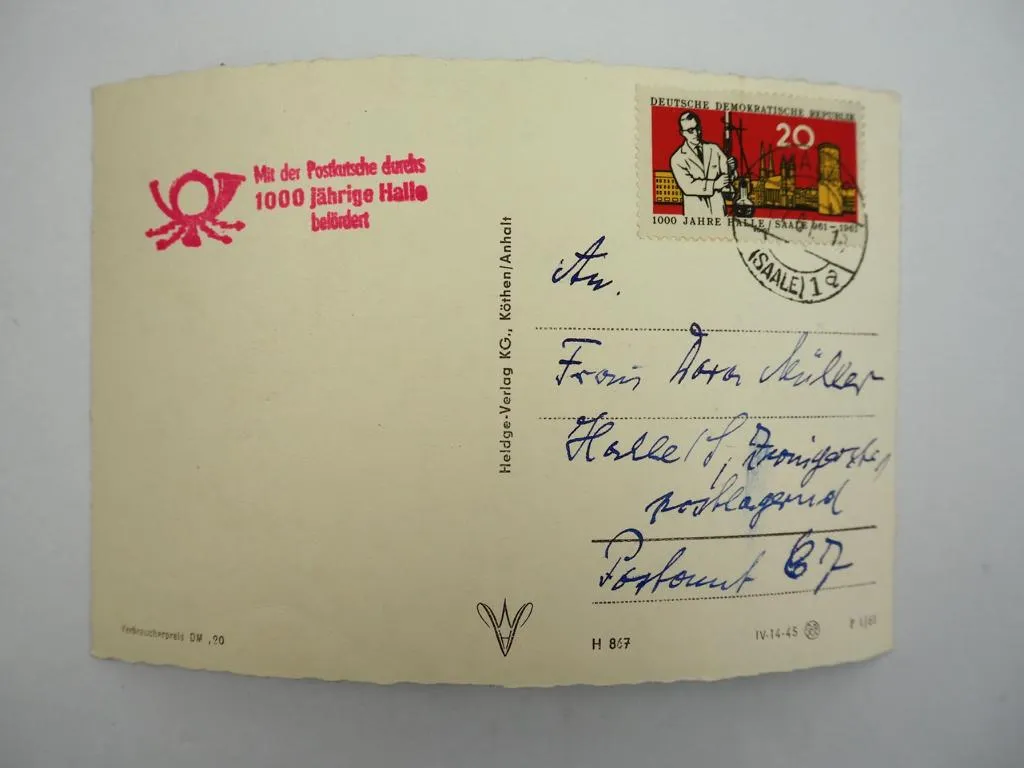 Mit der Postkutsche durchs
1000 jährige Halle
befördert
DEUTSCHE DEMOKRATISCHE REPUBLIK
20
1000 JAHRE HALLE/SAALE 961-1961
(SAALE) 1 a
An.
Frau Dora Müller
Halle / S,
postlagernd
Postamt 67
Heldge-Verlag KG., Köthen/Anhalt
Verbraucherpreis DM ,20
H 867
IV-14-45